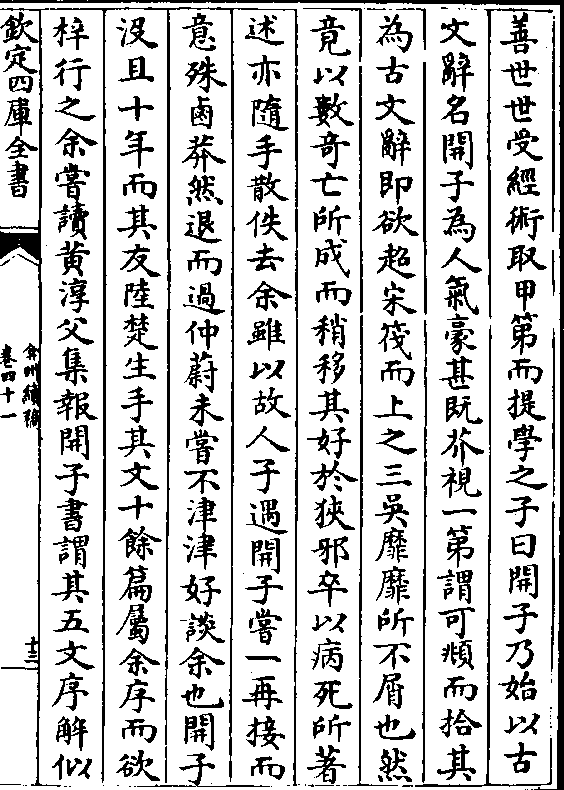 善世世受經術取甲第而提學之子曰開子乃始以古
文辭名開子為人氣豪甚既芥視一第謂可頫而拾其
為古文辭即欲超宋筏而上之三吳靡靡所不屑也然
竟以數奇亡所成而稍移其好於狹邪卒以病死所著
述亦隨手散佚去余雖以故人子遇開子嘗一再接而
意殊鹵莽然退而過仲蔚未嘗不津津好談余也開子
沒且十年而其友陸楚生手其文十餘篇屬余序而欲
梓行之余嘗讀黄淳父集報開子書謂其五文序解似
欽定四庫全書
弇州續稿
卷四十一
十三